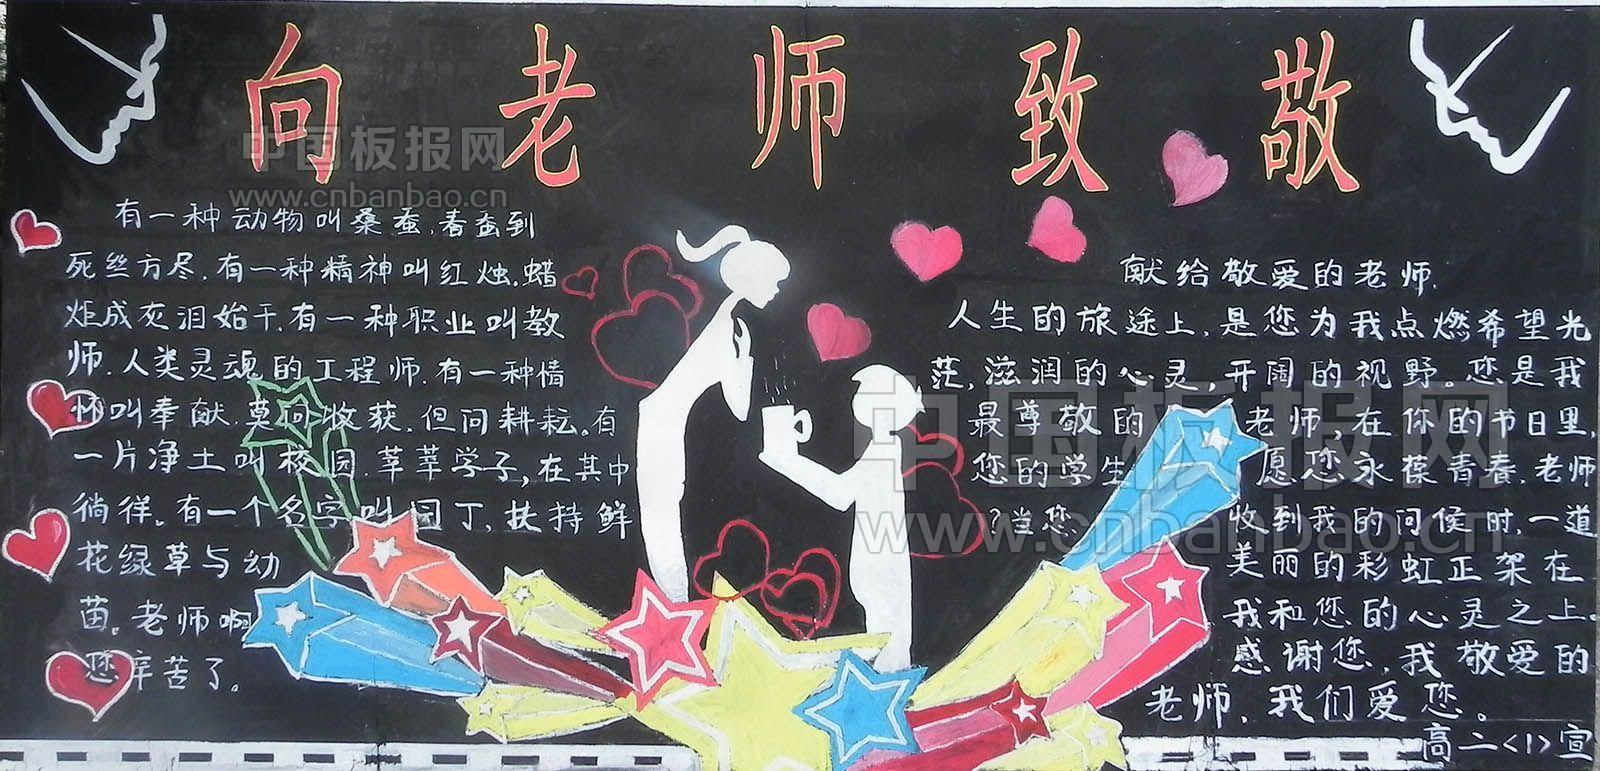 向老师致敬
中国板报网
www.cnbanbao.cn
有一种动物叫桑蚕,春蚕到
死丝方尽,有一种精神叫红烛,蜡
炬成灰泪始干,有一种职业叫教
师,人类灵魂的工程师,有一种情
怀叫奉献,莫问收获,但问耕耘。有
一片净土叫校园,莘莘学子,在其中
徜徉。有一个名字叫园丁,扶持鲜
花绿草与幼
苗。老师啊
您辛苦了。
献给敬爱的老师,
人生的旅途上,是您为我点燃希望光
茫,滋润的心灵,开阔的视野。您是我
最尊敬的老师,在你的节日里,
您的学生愿您永葆青春,老师
?当您收到我的问候时,一道
美丽的彩虹正架在
我和您的心灵之上。
感谢您,我敬爱的
老师,我们爱您。
高二<1>宣
中国板报网
www.cnbanbao.cn